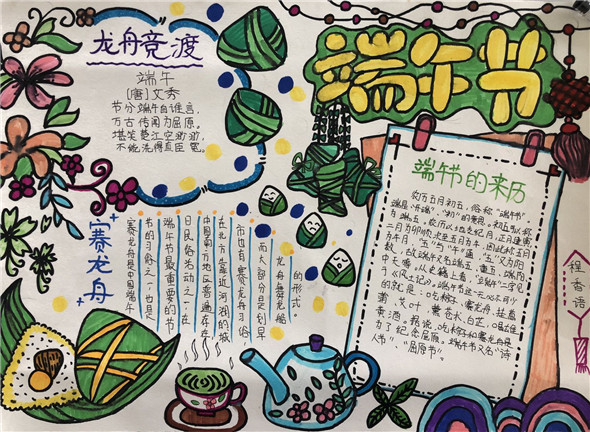 端午节
龙舟竞渡
端午
[唐]文秀
节分端午自谁言,
万古传闻为屈原。
堪笑楚江空渺渺,
不能洗得直臣冤。
赛龙舟
赛龙舟是中国端午
节的习俗之一,也是
端午节最重要的节
日民俗活动之一,在
中国南方地区普遍存在
在北方靠近河湖的城
市也有赛龙舟习俗
而大部分是划旱
龙舟舞龙船
的形式
端午节的来历
农历五月初五,俗称“端午节”
端是“开端”、“初”的意思。初五可以称
为端五。农历以地支纪月,正月建寅
二月为卯顺次至五月为午,因此称五月
为午月,“五”与“午”通,“五”又为阳
数,故端午又名端五、重五、端阳、
中天等。从史籍上看,“端午”二字见
于《风土记》。端午节这一天必不可少
的就是:吃粽子,赛龙舟,挂菖
蒲、艾叶、薰苍术、白芷,喝雄
黄酒。据说,吃粽子和赛龙舟是
为了纪念屈原。端午节又名“诗
人节”、“屈原节”。
程香语